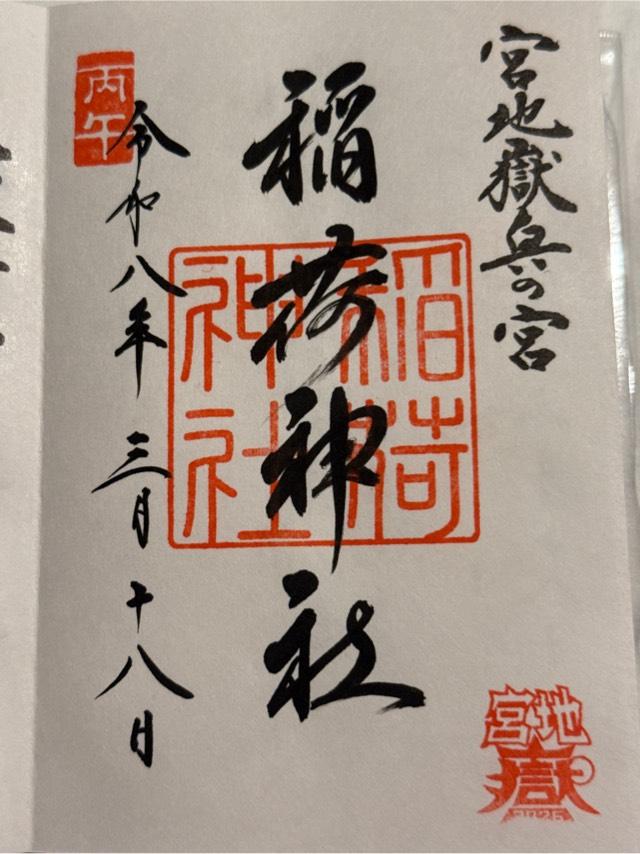 宮地嶽奥の宮
稲荷神社
稲荷神社
丙午
令和八年三月十八日
宮地嶽
2026